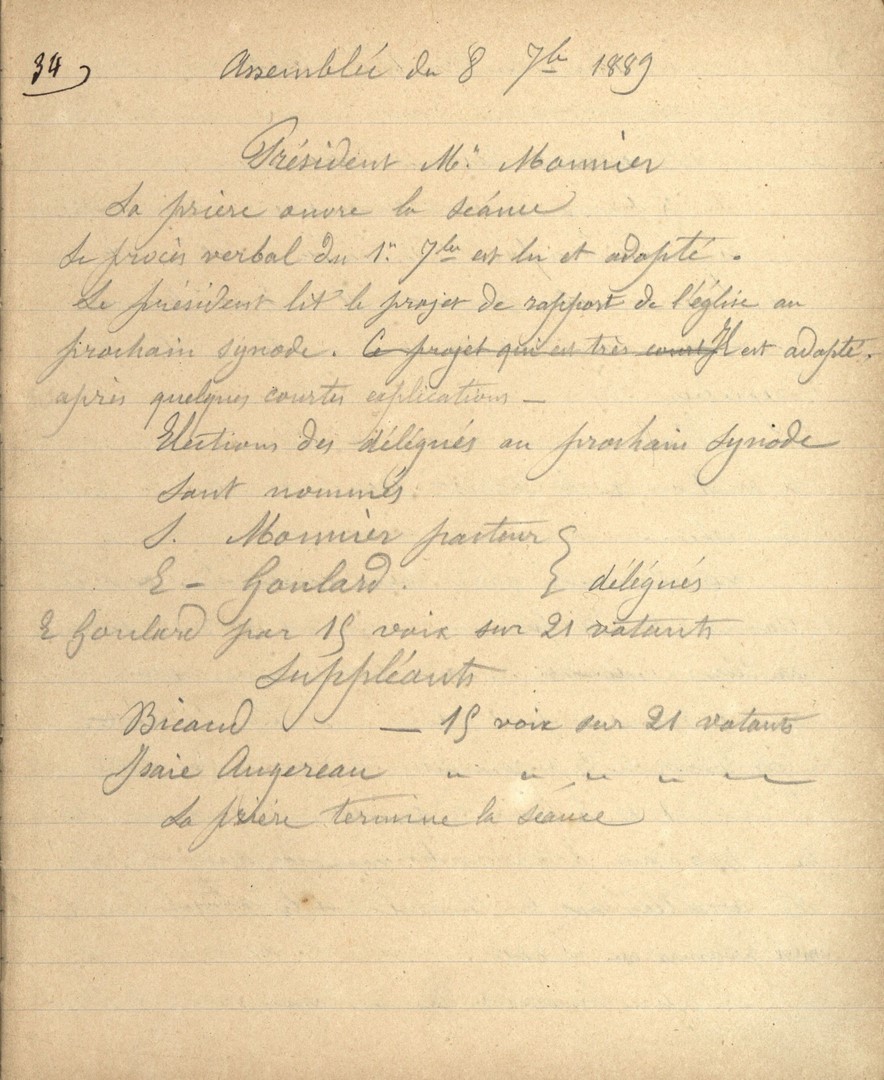 34
Assemblée du 8 7bre 1889
Président Mr. Monnier
La prière ouvre la séance
Le procès verbal du 1er 7bre est lu et adopté.
Le président lit le projet de rapport de l'église au
prochain synode. Ce projet qui est très court Il est adopté,
après quelques courtes explications —
Elections des délégués au prochain synode
Sont nommés
S. Monnier pasteur }
E - Goulard. } délégués
E Goulard par 15 voix sur 21 votants
Suppléants
Bicaud — 15 voix sur 21 votants
Isaïe Augereau " " " " "
La prière termine la séance